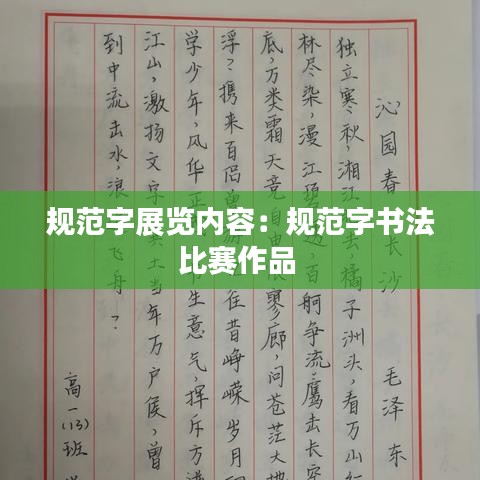 规范字展览内容：规范字书法
比赛作品
沁园春 长沙
毛泽东
独立寒秋，湘江去，橘子洲头，看万山
林尽染，漫江碧，百舸争流，鹰击长空
底，万类霜天竞自由寥廓，问苍茫大地
浮？携来百侣曾往昔峥嵘岁月
学少年，风华正生意气，挥斥方遒
江山，激扬文字土当年万户侯，曾
到中流击水，浪飞舟？
高一(13)班